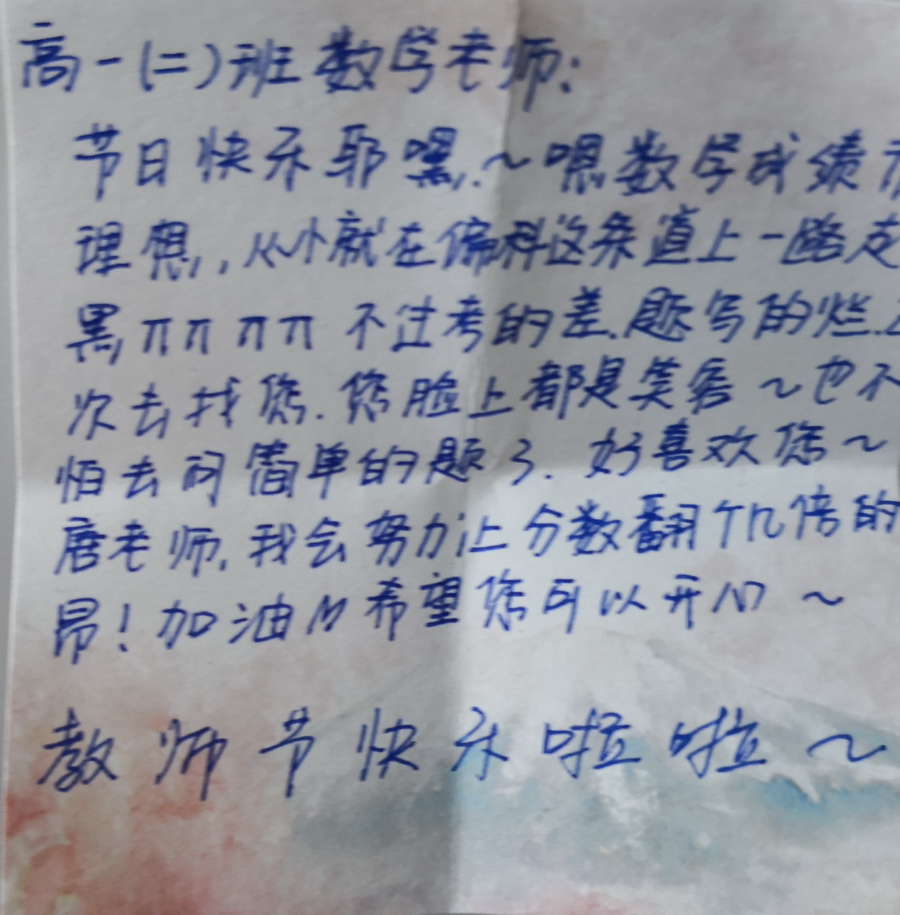 高一(二)班数学老师:
节日快乐耶嘿~嗯数学成绩
理想,从小就在偏科这条道上一路走
黑ππππ不过考的差.题写的烂.
次去找您.您脸上都是笑容~也不
怕去问简单的题了.好喜欢您~
唐老师.我会努力让分数翻个几倍的
昂!加油 希望您可以开心~
教师节快乐啦啦~